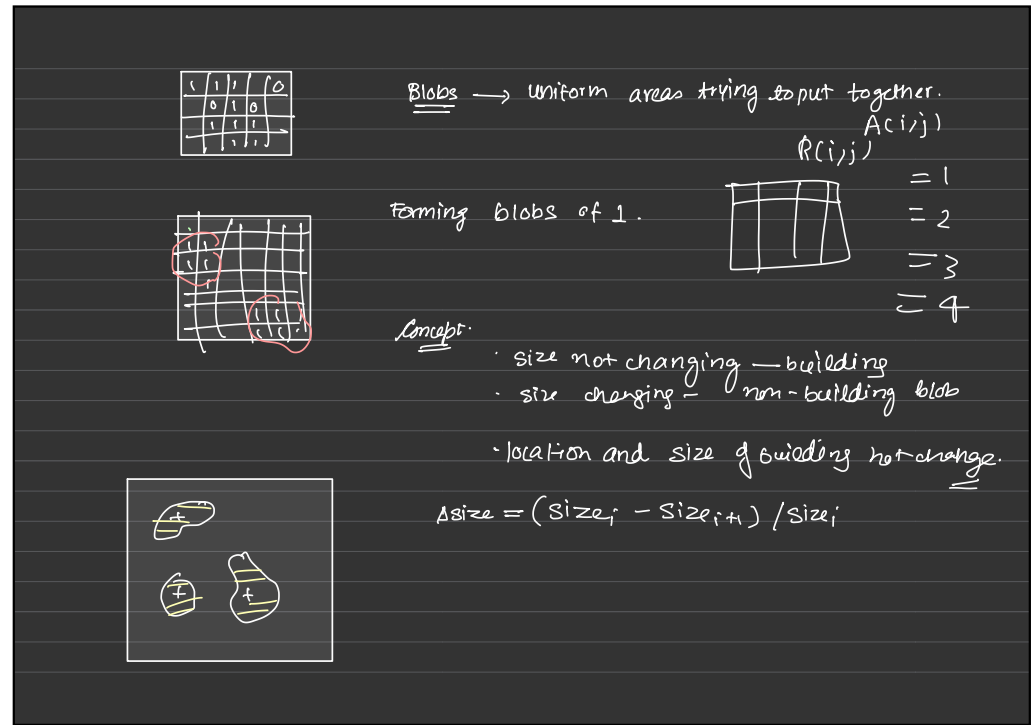 1 1 1 0
0 1 0
1 1 1
1 1
Blobs → uniform areas trying to put together.
A(i,j)
R(i,j)
= 1
= 2
= 3
= 4
Forming blobs of 1.
1 1
1 1
1
1 1 1
1 1 1
Concept.
· size not changing — building
· size changing - non-building blob
· location and size of building not change.
Δsize = (size_i - size_{i+1}) / size_i
+
+ +